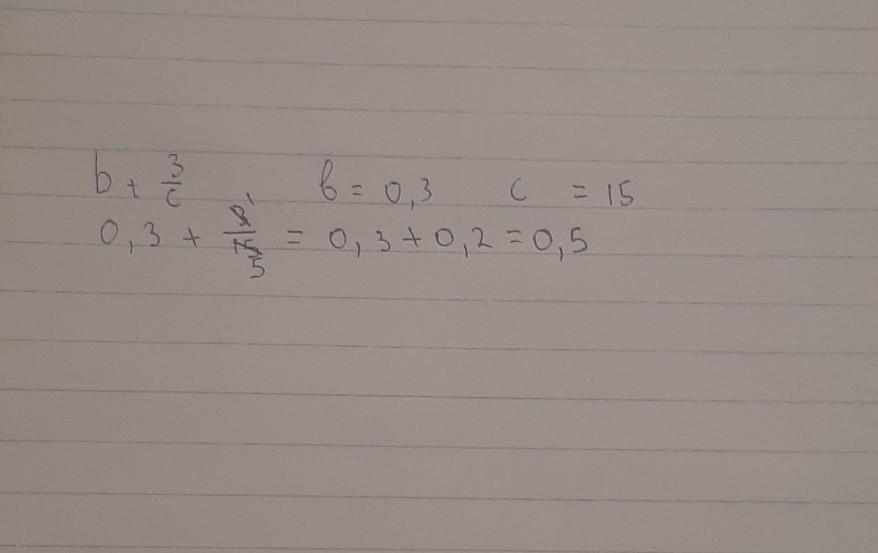 b + 3/c b = 0,3 c = 15
0,3 + 3̸ 1/1̸5̸ 5 = 0,3 + 0,2 = 0,5